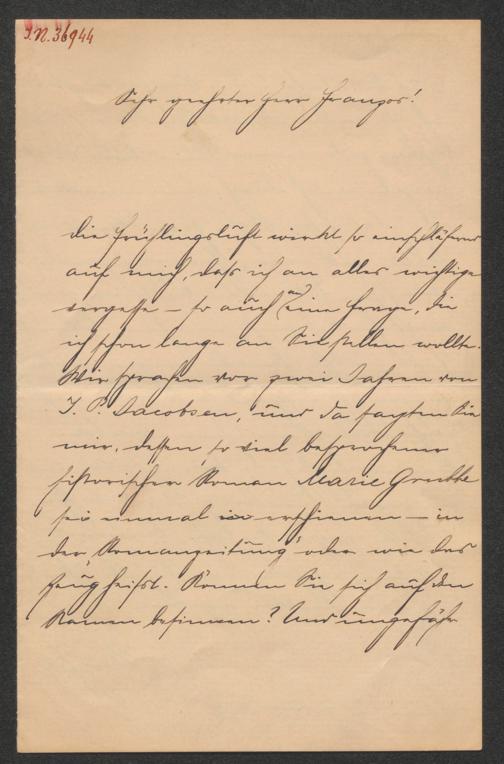 I.N. 36944
Sehr geehrter Herr Franzos!
Die Frühlingsluft wirkt so einschläfernd
auf mich, daß ich an alles wichtige
vergesse – so auch an eine Frage, die
ich schon lange an Sie stellen wollte.
Wir sprachen vor zwei Jahren von
J. P. Jacobsen, und da sagten Sie
mir, dessen so viel besprochener
historischer Roman Marie Grubbe
sei einmal erschienen – in
der "Romanzeitung" oder wie das
Zeug heißt. Können Sie sich auf den
Namen besinnen? Und ungefähr